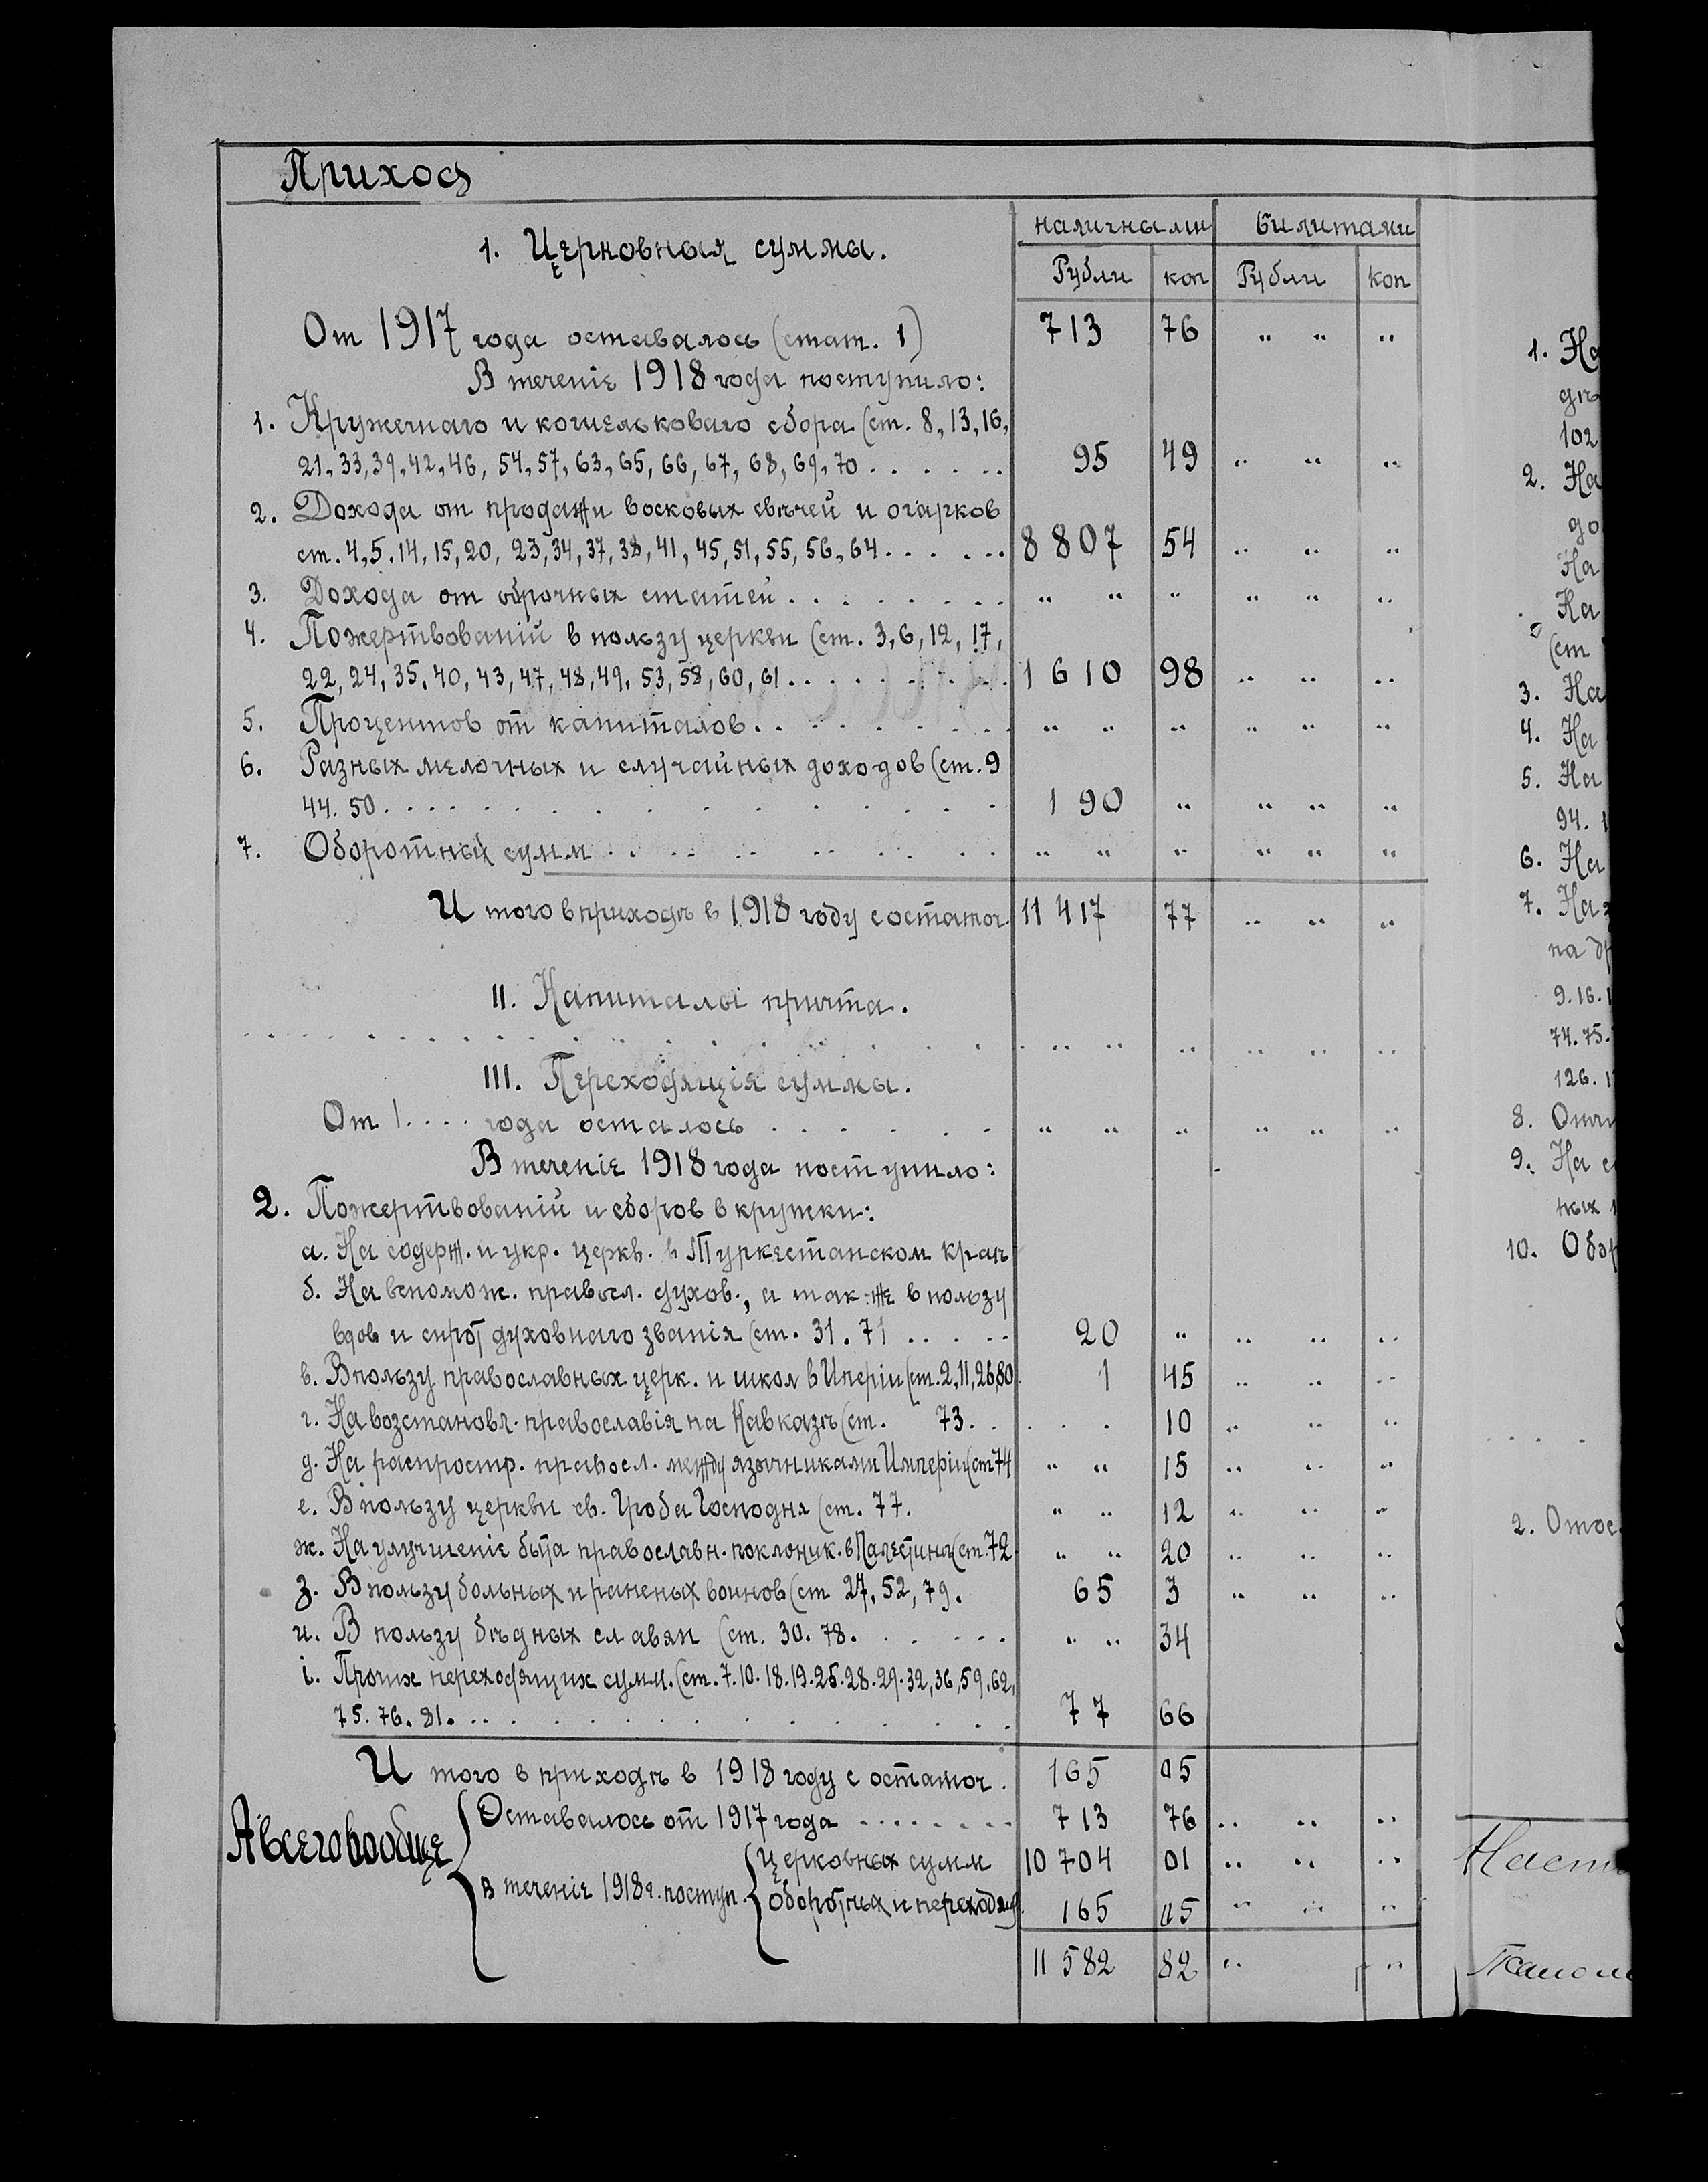 Приход
наличными билитами
1. Церковныя суммы.
Рубли коп Рубли коп
От 1917 года оставалось (стат. 1) 713 76 " " "
В теченіе 1918 года поступило:
1. Кружечнаго и кошельковаго сбора (ст. 8, 13, 16,
21, 33, 39, 42, 46, 54, 57, 63, 65, 66, 67, 68, 69, 70 . . . . . . 95 49 " " "
2. Дохода от продажи восковых свѣчей и огарков
ст. 4, 5. 14, 15, 20, 23, 34, 37, 38, 41, 45, 51, 55, 56, 64 . . . . . . 8807 54 " " "
3. Дохода от оброчных статей . . . . . . . . " " " " " "
4. Пожертвованій в пользу церкви (ст. 3, 6, 12, 17,
22, 24, 35, 40, 43, 47, 48, 49, 53, 58, 60, 61 . . . . . . . . 1610 98 " " "
5. Процентов от капиталов . . . . . . . . " " " " " "
6. Разных мелочных и случайных доходов (ст. 9
44. 50 . . . . . . . . . . . . . . 190 " " " "
7. Оборотных сумм . . . . . . . . . " " " " " "
И того в приходѣ в 1918 году с остаточ. 11417 77 " " "
II. Капиталы причта.
. . . . . . . . . . . . . . . . . . " " " " " "
III. Переходящія суммы.
От 1 . . . . года осталось . . . . . . . " " " " " "
В теченіе 1918 года поступило:
2. Пожертвованій и сборов в кружки:
а. На содерж. и укр. церкв. в Туркестанском краѣ
б. На вспомож. правосл. духов., а так-же в пользу
вдов и сирот духовнаго званія (ст. 31. 71 . . . . . 20 " " " "
в. В пользу православных церк. и школ в Иперіи (ст. 2, 11, 26, 80. 1 45 " " "
г. На возстановл. православія на Кавказѣ (ст. 73. . . . . 10 " " "
д. На распростр. правосл. между язычниками Имперіи (ст 74 " " 15 " " "
е. В пользу церкви св. Гроба Господня (ст. 77. " " 12 " " "
ж. На улучшеніе быта православн. поклоник. в Палестинѣ (ст. 72. " " 20 " " "
з. В пользу больных и раненых воинов (ст 27, 52, 79. 65 3 " " "
и. В пользу бѣдных славян (ст. 30. 78. . . . . . . " " 34
і. Прочих переходящих сумм. (ст. 7. 10. 18. 19. 25. 28. 29. 32, 36, 59, 62,
75. 76. 81. . . . . . . . . . . . . . 77 66
И того в приходѣ в 1918 году с остаточ. 165 05
А всего вообще
Оставалось от 1917 года . . . . . . . . 713 76 " " "
В теченіе 1918 г. поступ.
церковных сумм 10704 01 " " "
оборотных и переходящ. 165 05 " " "
11582 82 " "
1. На
102
2. На
до
На
На
(ст
3. На
4. На
5. На
94. 1
6. На
7. На
на др
9. 16. 1
74. 75.
126. 1
8.
9. На с
ных
10. Обор
2. Относ